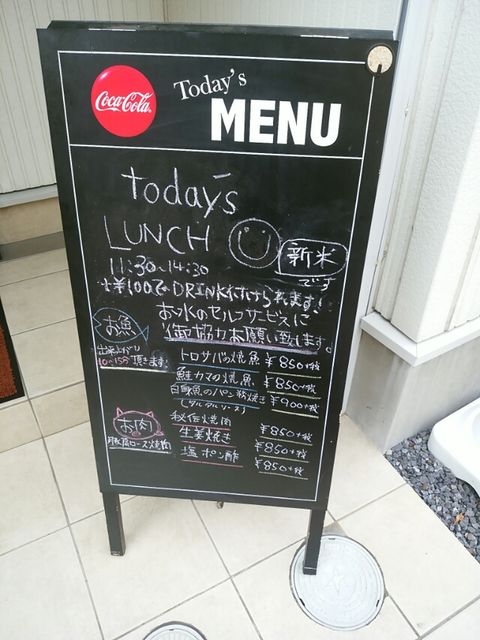 Coca-Cola
Today's
MENU
today's
LUNCH
新米
です
11:30~14:30
+¥100でDRINK付けられます!
お水のセルフサービスに
御協力お願い致します。
お魚
出来上がり
10~15分頂きます!
トロサバの焼魚 ¥850+税
鮭カマの焼魚 ¥850+税
白身魚のパン粉焼き ¥900+税
(タルタルソース)
お肉
豚肩ロース焼肉
秘伝焼肉 ¥850+税
生姜焼き ¥850+税
塩ポン酢 ¥850+税